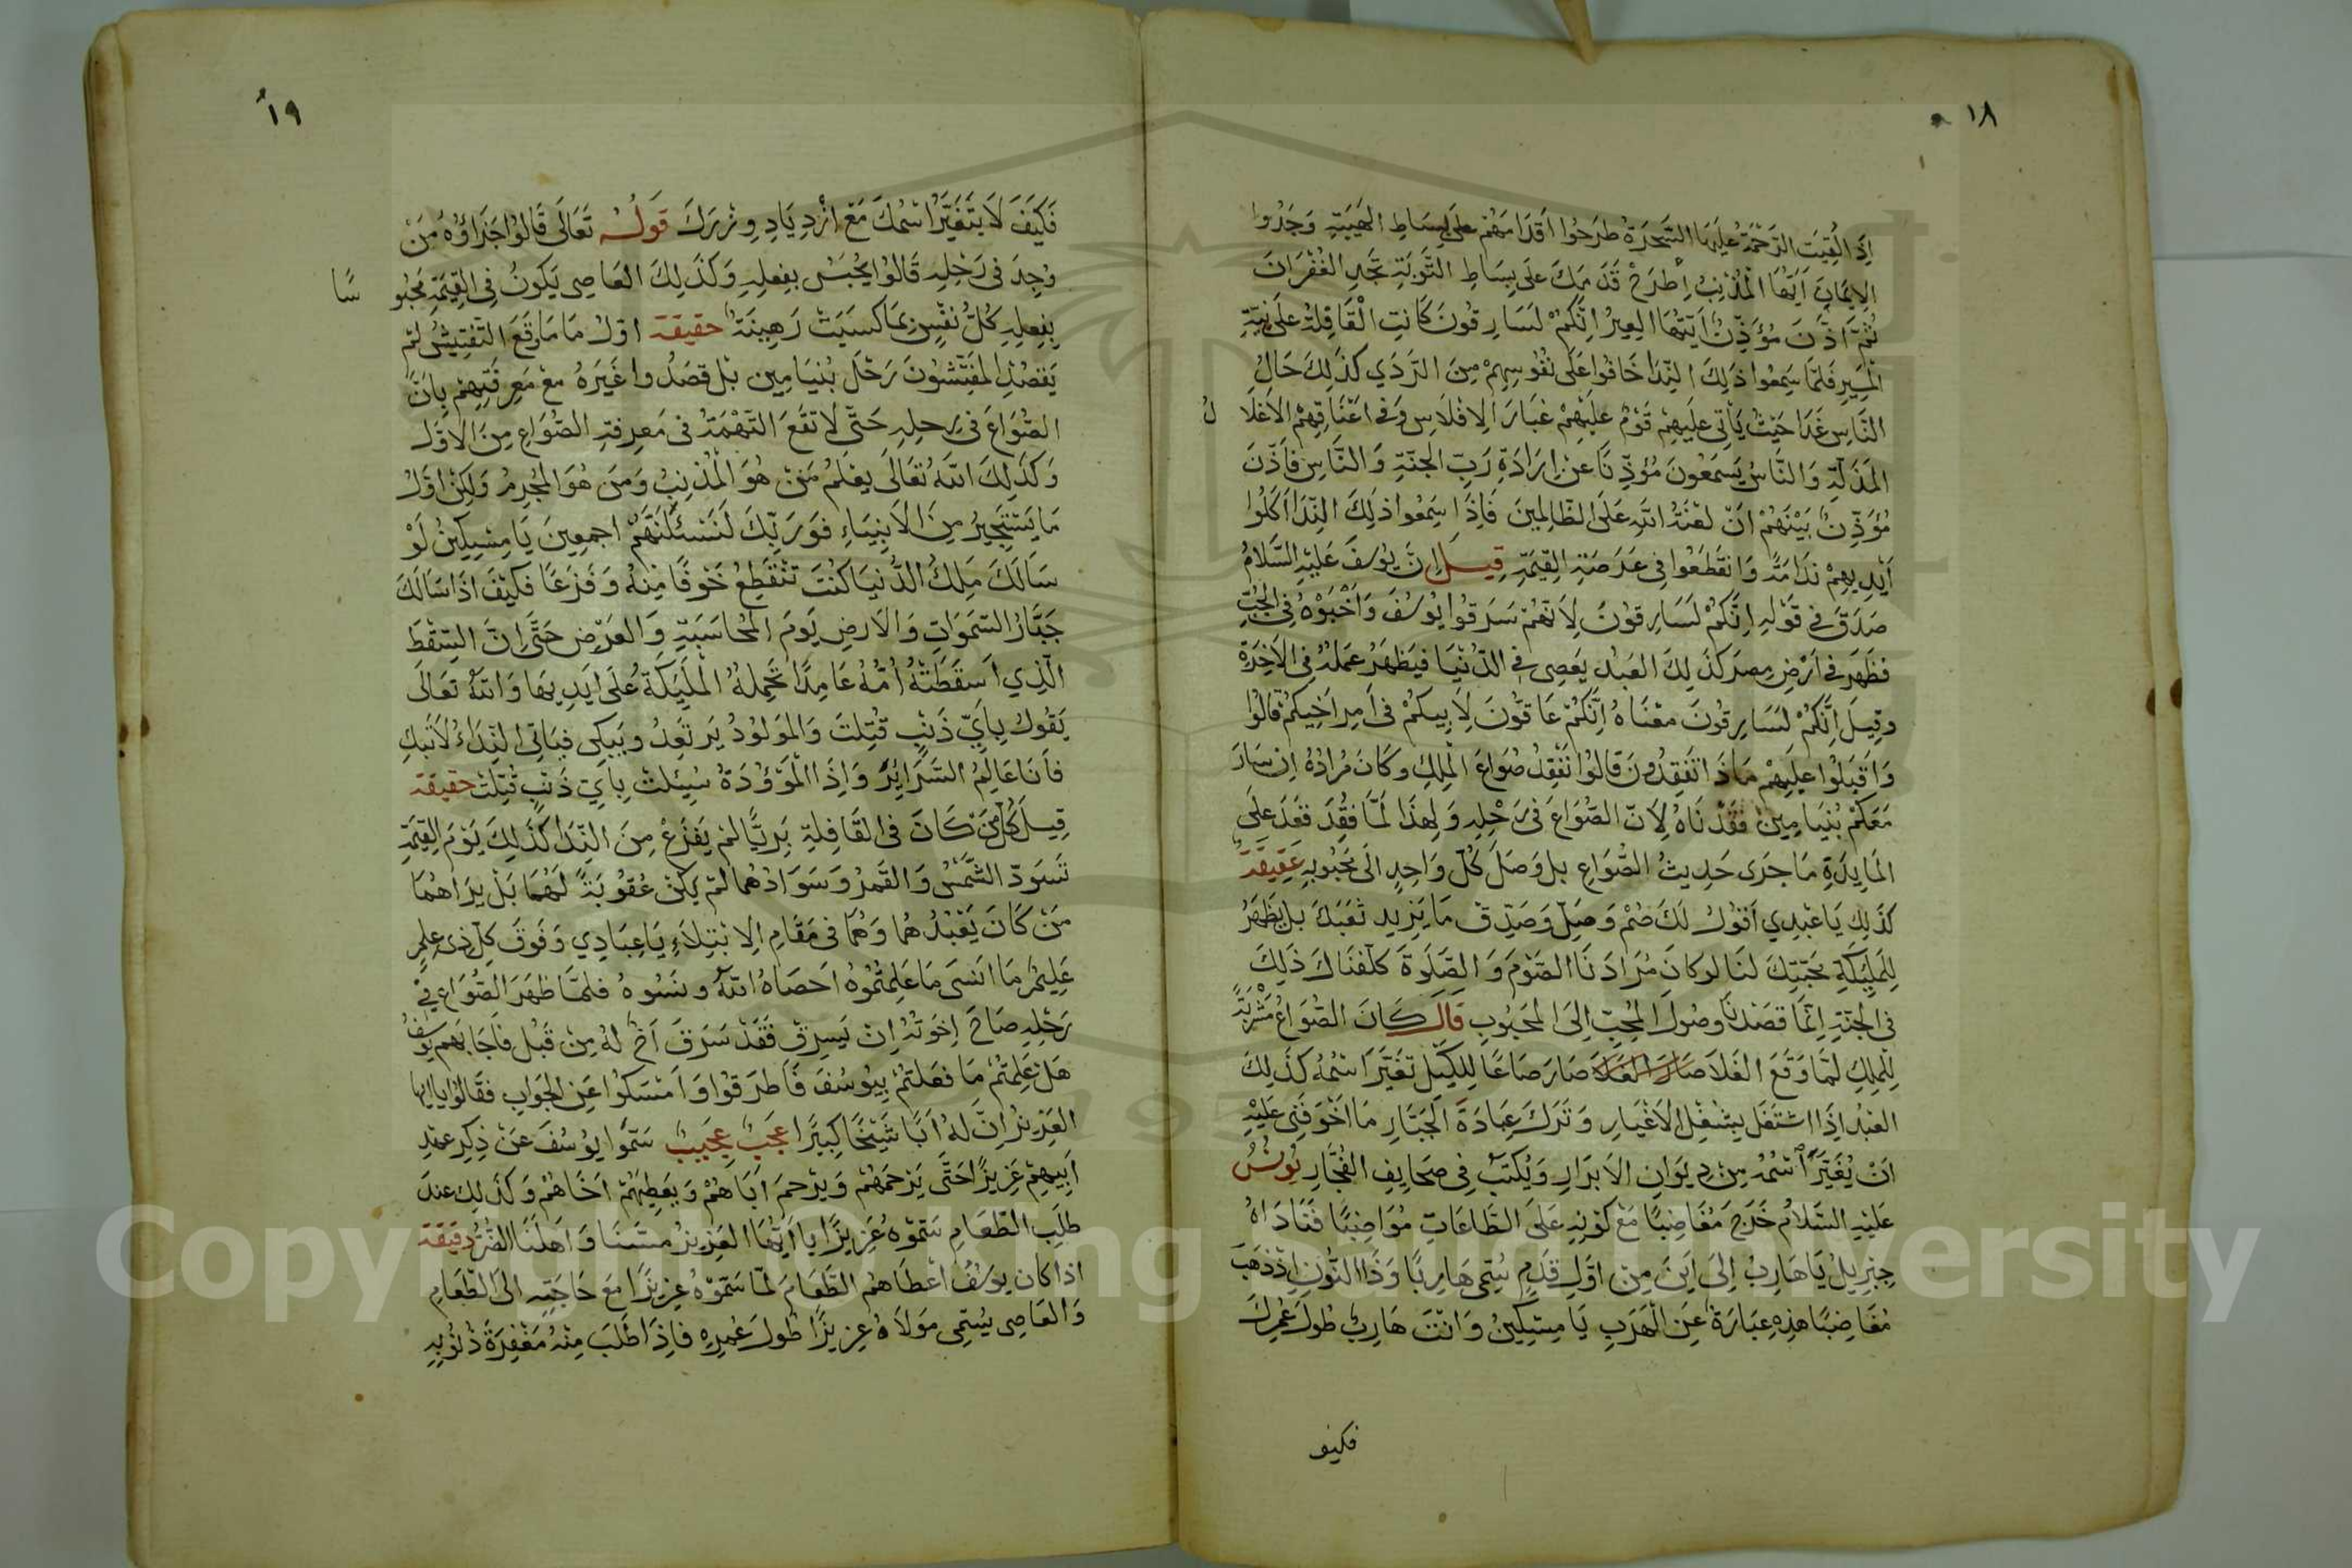 ١٨
إِذَا الْقِيَتِ الرَّحْمَةُ عَلَيْهَا السَّحَرَةُ طَرَحُوا أَقْدَامَهُمْ عَلَى بِسَاطِ الْهَيْبَةِ وَجَدُوا
الإِيمَانَ أَيُّهَا الْمُذْنِبُ إِطْرَحْ قَدَمَكَ عَلَى بِسَاطِ التَّوْبَةِ تَجِدِ الْغُفْرَانَ
ثُمَّ أَذَّنَ مُؤَذِّنٌ أَيَّتُهَا الْعِيرُ إِنَّكُمْ لَسَارِقُونَ كَانَتِ الْقَافِلَةُ عَلَى نِيَّةِ
الْمَسِيرِ فَلَمَّا سَمِعُوا ذَلِكَ النِّدَا خَافُوا عَلَى نُفُوسِهِمْ مِنَ الرَّدَي كَذَلِكَ حَالُ
النَّاسِ غَدَا حَيْثُ يَأْتِي عَلَيْهِمْ قَوْمٌ عَلَيْهِمْ غُبَارَ الإِفْلَاسِ وَفِي أَعْنَاقِهِمْ الأَغْلَا لُ
الْمَذَلَّةِ وَالنَّاسُ يَسْمَعُونَ مُؤَذِّنًا عَنْ إِرَادَةِ رَبِّ الْجَنَّةِ وَالنَّاسِ فَأَذَّنَ
مُؤَذِّنٌ بَيْنَهُمْ أَنْ لَعْنَةُ اللَّهِ عَلَى الظَّالِمِينَ فَإِذَا سَمِعُوا ذَلِكَ النِّدَا أَكَلُوا
أَيْدِيهِمْ نَدَامَةً وَانْقَطَعُوا فِي عَرَصَةِ الْقِيَمَةِ قِيلَ إِنَّ يُوسُفَ عَلَيْهِ السَّلَامُ
صَدَقَ فِي قَوْلِهِ إِنَّكُمْ لَسَارِقُونَ لِأَنَّهُمْ سَرَقُوا يُوسُفَ وَأَخْبَوْهُ فِي الْجُبِّ
فَظَهَرَ فِي أَرْضِ مِصْرَ كَذَلِكَ الْعَبْدُ يَعْصِي فِي الدُّنْيَا فَيَظْهَرُ عَمَلُهُ فِي الآخِرَةِ
وَقِيلَ إِنَّكُمْ لَسَارِقُونَ مَعْنَاهُ إِنَّكُمْ عَاقُّونَ لِأَبِيكُمْ فِي أَمْرِ أَخِيكُمْ قَالُوا
وَأَقْبَلُوا عَلَيْهِمْ مَاذَا تَفْقِدُونَ قَالُوا نَفْقِدُ صُوَاعَ الْمَلِكِ وَكَانَ مُرَادُهُ إِنْ سَارَ
مَعَكُمْ بُنْيَامِينَ فَقَدْنَاهُ لِأَنَّ الصُّوَاعَ فِي رَحْلِهِ وَلِهَذَا لَمَّا فُقِدَ فَقَدَ عَلَى
الْمَايِدَةِ مَا جَرَى حَدِيثُ الصُّوَاعِ بَلْ وَصَلَ كُلُّ وَاحِدٍ إِلَى مَحْبُوبِهِ حَقِيقَة
كَذَلِكَ يَا عَبْدِي أَقُولُ لَكَ صُمْ وَصَلِّ وَصَدِّقْ مَا يَزِيدُ تَعَبَكَ بَلْ يَظْهَرُ
لِلْمَلَيِكَةِ مَحَبَّتِكَ لَنَا لَوْ كَانَ مُرَادُنَا الصَّوْمَ وَالصَّلَوةَ كَلَّفْنَاكَ ذَلِكَ
فِي الْجَنَّةِ إِنَّمَا قَصْدُنَا وُصُولُ الْمُحِبِّ إِلَى الْمَحْبُوبِ قَالَ كَانَ الصُّوَاعُ مَشْرَبَةً
لِلْمَلِكِ لَمَّا وَقَعَ الْغَلَا صَارَ صَاعًا لِلْكَيْلِ تَغَيَّرَ اسْمُهُ كَذَلِكَ
الْعَبْدُ إِذَا اشْتَغَلَ بِشُغْلِ الأَغْيَارِ وَتَرَكَ عِبَادَةَ الْجَبَّارِ مَا أَخْوَفَنِي عَلَيْهِ
أَنْ يُغَيَّرَ اسْمُهُ مِنْ دِيوَانِ الأَبْرَارِ وَيُكْتَبْ فِي صَحَايِفِ الْفُجَّارِ يُونُسُ
عَلَيْهِ السَّلَامُ خَرَجَ مُغَاضِبًا مَعَ كَوْنِهِ عَلَى الطَّاعَاتِ مُوَاضِبًا فَنَادَاهُ
جِبْرِيلُ يَا هَارِبُ إِلَى أَيْنَ مِنْ أَوَّلِ قَدَمٍ سُمِّيَ هَارِبًا وَذَا النُّونِ إِذْ ذَهَبَ
مُغَاضِبًا هَذِهِ عِبَارَةٌ عَنِ الْهَرَبِ يَا مِسْكِينُ وَأَنْتَ هَارِبٌ طُولَ عُمْرِكَ
فكيف
١٩
فَكَيْفَ لَا يَتَغَيَّرُ اسْمُكَ مَعَ ازْدِيَادِ وِزْرِكَ قَوْلُهُ تَعَالَى قَالُوا جَزَاؤُهُ مَنْ
وُجِدَ فِي رَحْلِهِ قَالُوا يُحْبَسُ بِفِعْلِهِ وَكَذَلِكَ الْعَاصِي يَكُونُ فِي الْقِيَمَةِ مَحْبُو سًا
بِفِعْلِهِ كُلُّ نَفْسٍ بِمَا كَسَبَتْ رَهِينَةٌ حَقِيقَة أَوَّلُ مَا مَا رَقَعَ التَّفْتِيشُ لَمْ
يَقْصُدِ الْمُفَتِّشُونَ رَحْلَ بُنْيَامِينَ بَلْ قَصَدُوا غَيْرَهُ مَعَ مَعْرِفَتِهِمْ بِأَنَّ
الصُّوَاعَ فِي رَحْلِهِ حَتَّى لَا تَقَعَ التُّهْمَةُ فِي مَعْرِفَةِ الصُّوَاعِ مِنَ الأَوَّلِ
وَكَذَلِكَ اللَّهُ تَعَالَى يَعْلَمُ مَنْ هُوَ الْمُذْنِبُ وَمَنْ هُوَ الْمُجْرِمُ وَلَكِنْ أَوَّلُ
مَا يَسْتَجِيرُ مِنَ الأَنْبِيَاءِ فَوَرَبِّكَ لَنَسْئَلَنَّهُمْ أَجْمَعِينَ يَا مِسْكِينُ لَوْ
سَالَكَ مَلِكُ الدُّنْيَا كُنْتَ تَنْقَطِعُ خَوْفًا مِنْهُ وَفَزَعًا فَكَيْفَ إِذَا سَالَكَ
جَبَّارُ السَّمَوَاتِ وَالأَرْضِ يَوْمَ الْمُحَاسَبَةِ وَالْعَرْضِ حَتَّى إِنَّ السِّقْطَ
الَّذِي أَسْقَطَتْهُ أُمُّهُ عَامِدًا تَحْمِلُهُ الْمَلَيِكَةُ عَلَى أَيْدِيهَا وَاللَّهُ تَعَالَى
يَقُولُ بِأَيِّ ذَنْبٍ قُتِلْتَ وَالْمَوْلُودُ يَرْتَعِدُ وَيَبْكِي فَيَأْتِي النِّدَاءُ لَا تَبْكِ
فَأَنَا عَالِمُ السَّرَايِرِ وَإِذَا الْمَوْؤُدَةُ سُئِلَتْ بِأَيِّ ذَنْبٍ قُتِلَتْ حَقِيقَة
قِيلَ كُلُّ مَنْ كَانَ فِي الْقَافِلَةِ بَرِيًّا لَمْ يَفْزَعْ مِنَ النِّدَا كَذَلِكَ يَوْمَ الْقِيَمَةِ
تَسْوَدُّ الشَّمْسُ وَالْقَمَرُ وَسَوَادُهُمَا لَمْ يَكُنْ عُقُوبَةً لَهُمَا بَلْ يَرَاهُمَا
مَنْ كَانَ يَعْبُدُهُمَا وَهُمَا فِي مَقَامِ الإِبْتِلَاءِ يَا عِبَادِي وَفَوْقَ كُلِّ ذِي عِلْمٍ
عَلِيمٌ مَا أَنْسَى مَا عَلِمْتُمُوهُ أَحْصَاهُ اللَّهُ وَنَسُوهُ فَلَمَّا ظَهَرَ الصُّوَاعُ فِي
رَحْلِهِ صَاحَ إِخْوَتُهُ إِنْ يَسْرِقْ فَقَدْ سَرَقَ أَخٌ لَهُ مِنْ قَبْلُ فَأَجَابَهُمْ يُوسُفُ
هَلْ عَلِمْتُمْ مَا فَعَلْتُمْ بِيُوسُفَ فَأَطْرَقُوا وَأَمْسَكُوا عَنِ الْجَوَابِ فَقَالُوا يَا أَيُّهَا
الْعَزِيزُ إِنَّ لَهُ أَبًا شَيْخًا كَبِيرًا عَجَبٌ عَجِيبٌ سَمَّوْا يُوسُفَ عَنْ ذِكْرِ عِنْدِ
أَبِيهِمْ عَزِيزًا حَتَّى يَرْحَمَهُمْ وَيَرْحَمَ أَبَاهُمْ وَيُعْطِيَهُمْ أَخَاهُمْ وَكَذَلِكَ عِنْدَ
طَلَبِ الطَّعَامِ سَمَّوْهُ عَزِيزًا يَا أَيُّهَا الْعَزِيزُ مَسَّنَا وَأَهْلَنَا الضُّرُّ دَقِيقَة
إِذَا كَانَ يُوسُفُ أَعْطَاهُمُ الطَّعَامَ لَمَّا سَمَّوْهُ عَزِيزًا مَعَ حَاجَتِهِ إِلَى الطَّعَامِ
وَالْعَاصِي يُسَمِّي مَوْلَاهُ عَزِيزًا طُولَ عُمْرِهِ فَإِذَا طَلَبَ مِنْهُ مَغْفِرَةَ ذُنُوبِهِ
Copyright © King Saud University